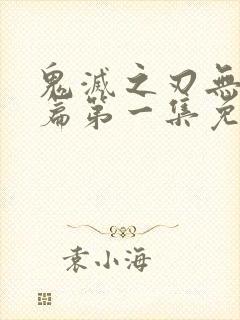 鬼滅之刃無
篇第一集免
袁小海